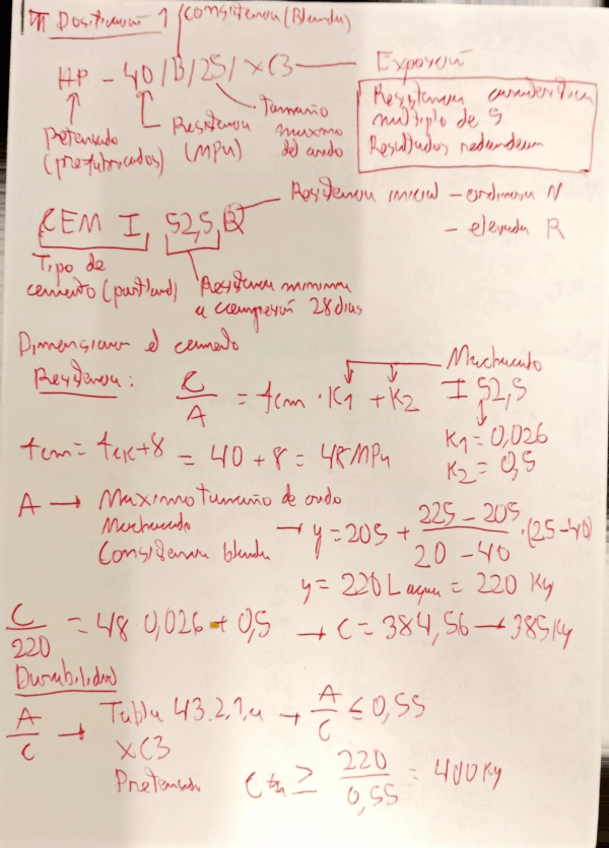 Dosificación 1
consistencia (Blanda)
HP - 40 / B / 25 / XC3 — Exposición
pretensado (prefabricados)
Resistencia (MPa)
Tamaño maximo del arido
Resistencia caracteristica
multiplo de 5
Resultados redondean
CEM I, 52,5, R
Resistencia inicial - ordinaria N
- elevada R
Tipo de cemento (portland)
Resistencia minima a compresión 28 dias
Dimensionar el cemento
Resistencia:
C/A = fcm · K1 + K2
Machacado
I 52,5
K1 = 0,026
K2 = 0,5
fcm = fck + 8 = 40 + 8 = 48 MPa
A → Maximo tamaño de arido
Machacado
Consistencia blanda
→ y = 205 + (225 - 205)/(20 - 40) · (25 - 40)
y = 220 L agua = 220 Kg
C/220 = 48 · 0,026 + 0,5 → C = 384,56 → 385 Kg
Durabilidad
A/C → Tabla 43.2.1.a → A/C ≤ 0,55
XC3
Pretensado
C ≥ 220/0,55 = 400 Kg